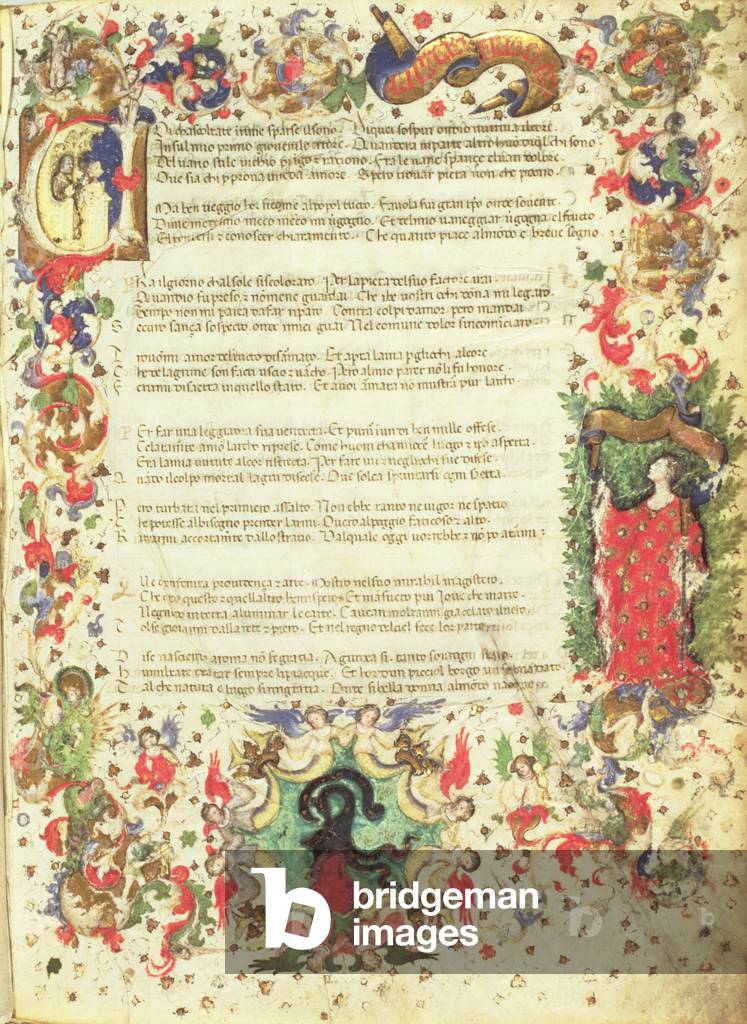 Oi chascoltate in rime sparse il sono. Di quei sospiri ondio nutriva il core
In sul mio primo giovenile errore. Quandera in parte altro huō da quel chi sono
Del vario stile in chio piango z ragiono. Fra le vane sperançe el van dolore
Ove sia chi p prova intenda amore. Spero trovar pieta non che perdono.
Ma ben veggio hor sicome al popol tucto. Favola fui gran tpo onde sovente.
Di me medesmo meco meco mi vgogno. Et del mio vaneggiar vgogna el fructo
El pentersi z conoscer chiaramente. Che quanto piace al modo e breve sogno.
Era il giorno chal sole si scoloraro. Per la pieta del suo factore i rai
Quando io fu preso, z nō mene guardai. Che ibe vostri ochi dōna mi legaro.
Tempo non mi parea da far riparo. Contra colpi damor. pero mandai
Secur sança sospecto. onde i miei guai Nel comune dolor sincominciaro.
Trovōmi amor del tucto disarmato. Et apta la via p gliochi al core
Che di lagrime son facti uscio z varcho. Pero al mio parer nō li fu honore.
Ferirmi di saecta in quello stato. Et avoi armata nō mustrar pur larcho.
Per far una leggiadra sua vendecta. Et punir in un di ben mille offese.
Celatamēte amor larcho riprese. Come huom cha nuocer luogo z tpo aspecta.
Era la mia virtute al cor ristrecta. Per fare ivi z negliochi sue difese
Quando il colpo mortal laggiu discese. Ove solea spuntarsi ogni saetta.
Pero turbata nel primiero assalto. Non ebbe tanto ne vigor ne spatio.
Che potesse al bisogno prender larmi. Overo al poggio faticoso z alto.
Ritrarmi accortamēte dallo stratio. Dal quale oggi vorrebbe z nō po aitarmi
Quel chenfinita providença z arte. Mostro nel suo mirabil magistero.
Che creo questo z quellaltro hemispero. Et mansueto piu Jove che marte.
Vegnendo in terra aluminar le carte. Cavean moltanni gia celato il vero.
Tolse giovanni dalla rete z piero. Et nel regno del ciel fece lor parte.
Di se nascendo a roma nō fe gratia. A giudea si. tanto sovrogni stato.
Humiltate exaltar sempre li piacque. Et hor dun picciol borgo un sol na dato.
Tal che natura el luogo si ringratia. Onde si bella donna al mōdo nacque.
bridgeman
images